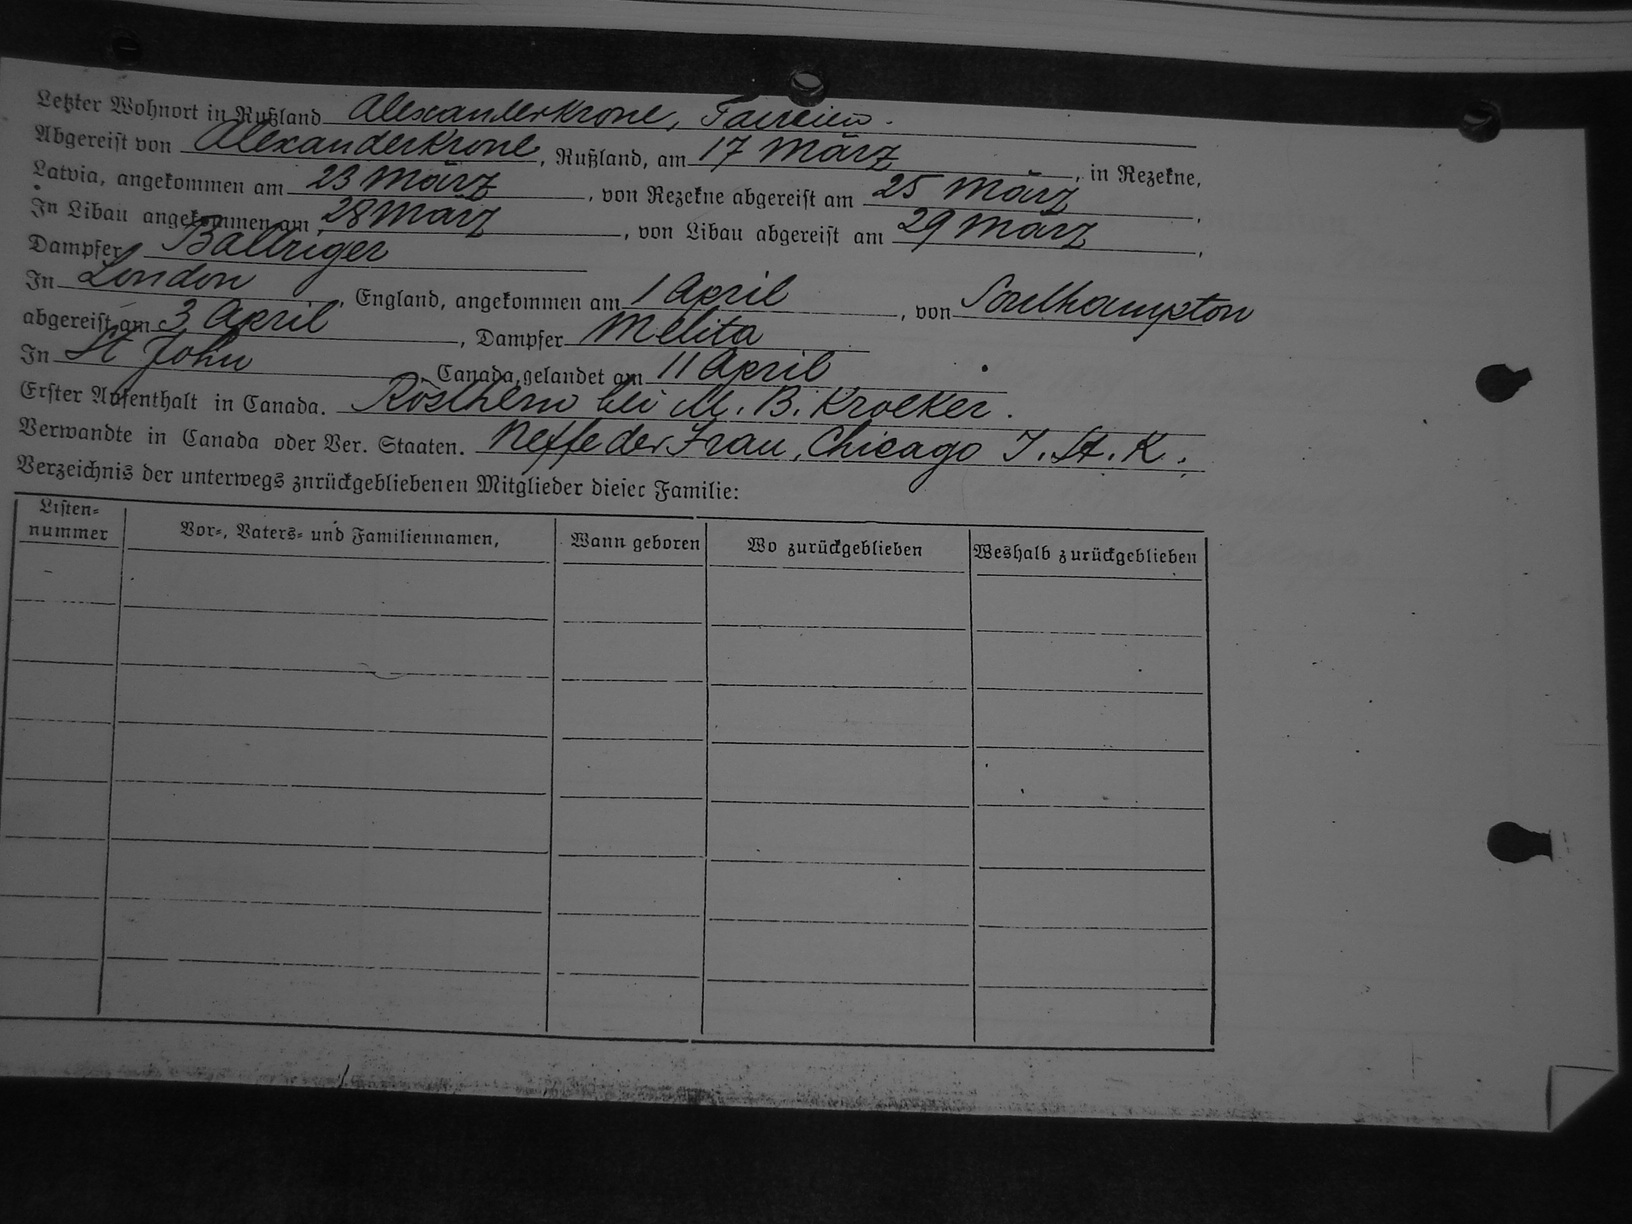 Letzter Wohnort in Rußland Alexanderkrone, Taurien.
Abgereist von Alexanderkrone, Rußland, am 17 März, in Rezekne,
Latvia, angekommen am 23 März, von Rezekne abgereist am 25 März,
In Libau angekommen am 28 März, von Libau abgereist am 29 März,
Dampfer Baltriger
In London, England, angekommen am 1 April, von Southampton
abgereist am 3 April, Dampfer Melita
In St John, Canada, gelandet am 11 April
Erster Aufenthalt in Canada. Rosthern bei M. B. Kroeker.
Verwandte in Canada oder Ver. Staaten. Neffe der Frau, Chicago J. St. K.,
Verzeichnis der unterwegs znrückgebliebenen Mitglieder diesec Familie:
Listen=
nummer Vor=, Vaters= und Familiennamen, Wann geboren Wo zurückgeblieben Weshalb zurückgeblieben